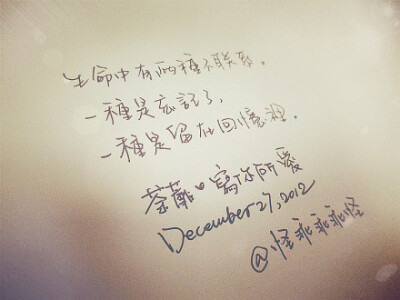 生命中有兩種不联系。
一種是忘記了，
一種是留在回憶裡。
荼蘼。寫你所愛
December 27, 2012
@怪乖乖乖怪